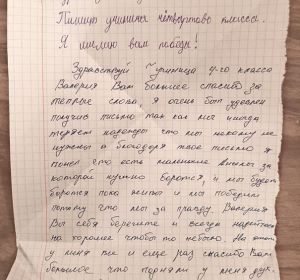 Пишит ученица четвёртого класса.
Я желаю вам победы!
Здравствуй Ученица 4-го класса
Валерия Вам большое спасибо за
теплые слова, я очень был удивлен
получив письмо так как мы иногда
теряем надежды что мы некому не
нужны а благодаря твое письмо я
понял что есть маленькие за
которой нужно боротся, и мы будем
боротся пока живы и мы победим
потому что мы за правду. Валерия
Вы себя берегите и всегда надейтесь
на хорошее чтобы то небыло. На этом
у меня все и еще раз спасибо Вам
большое что подняли у меня дух.